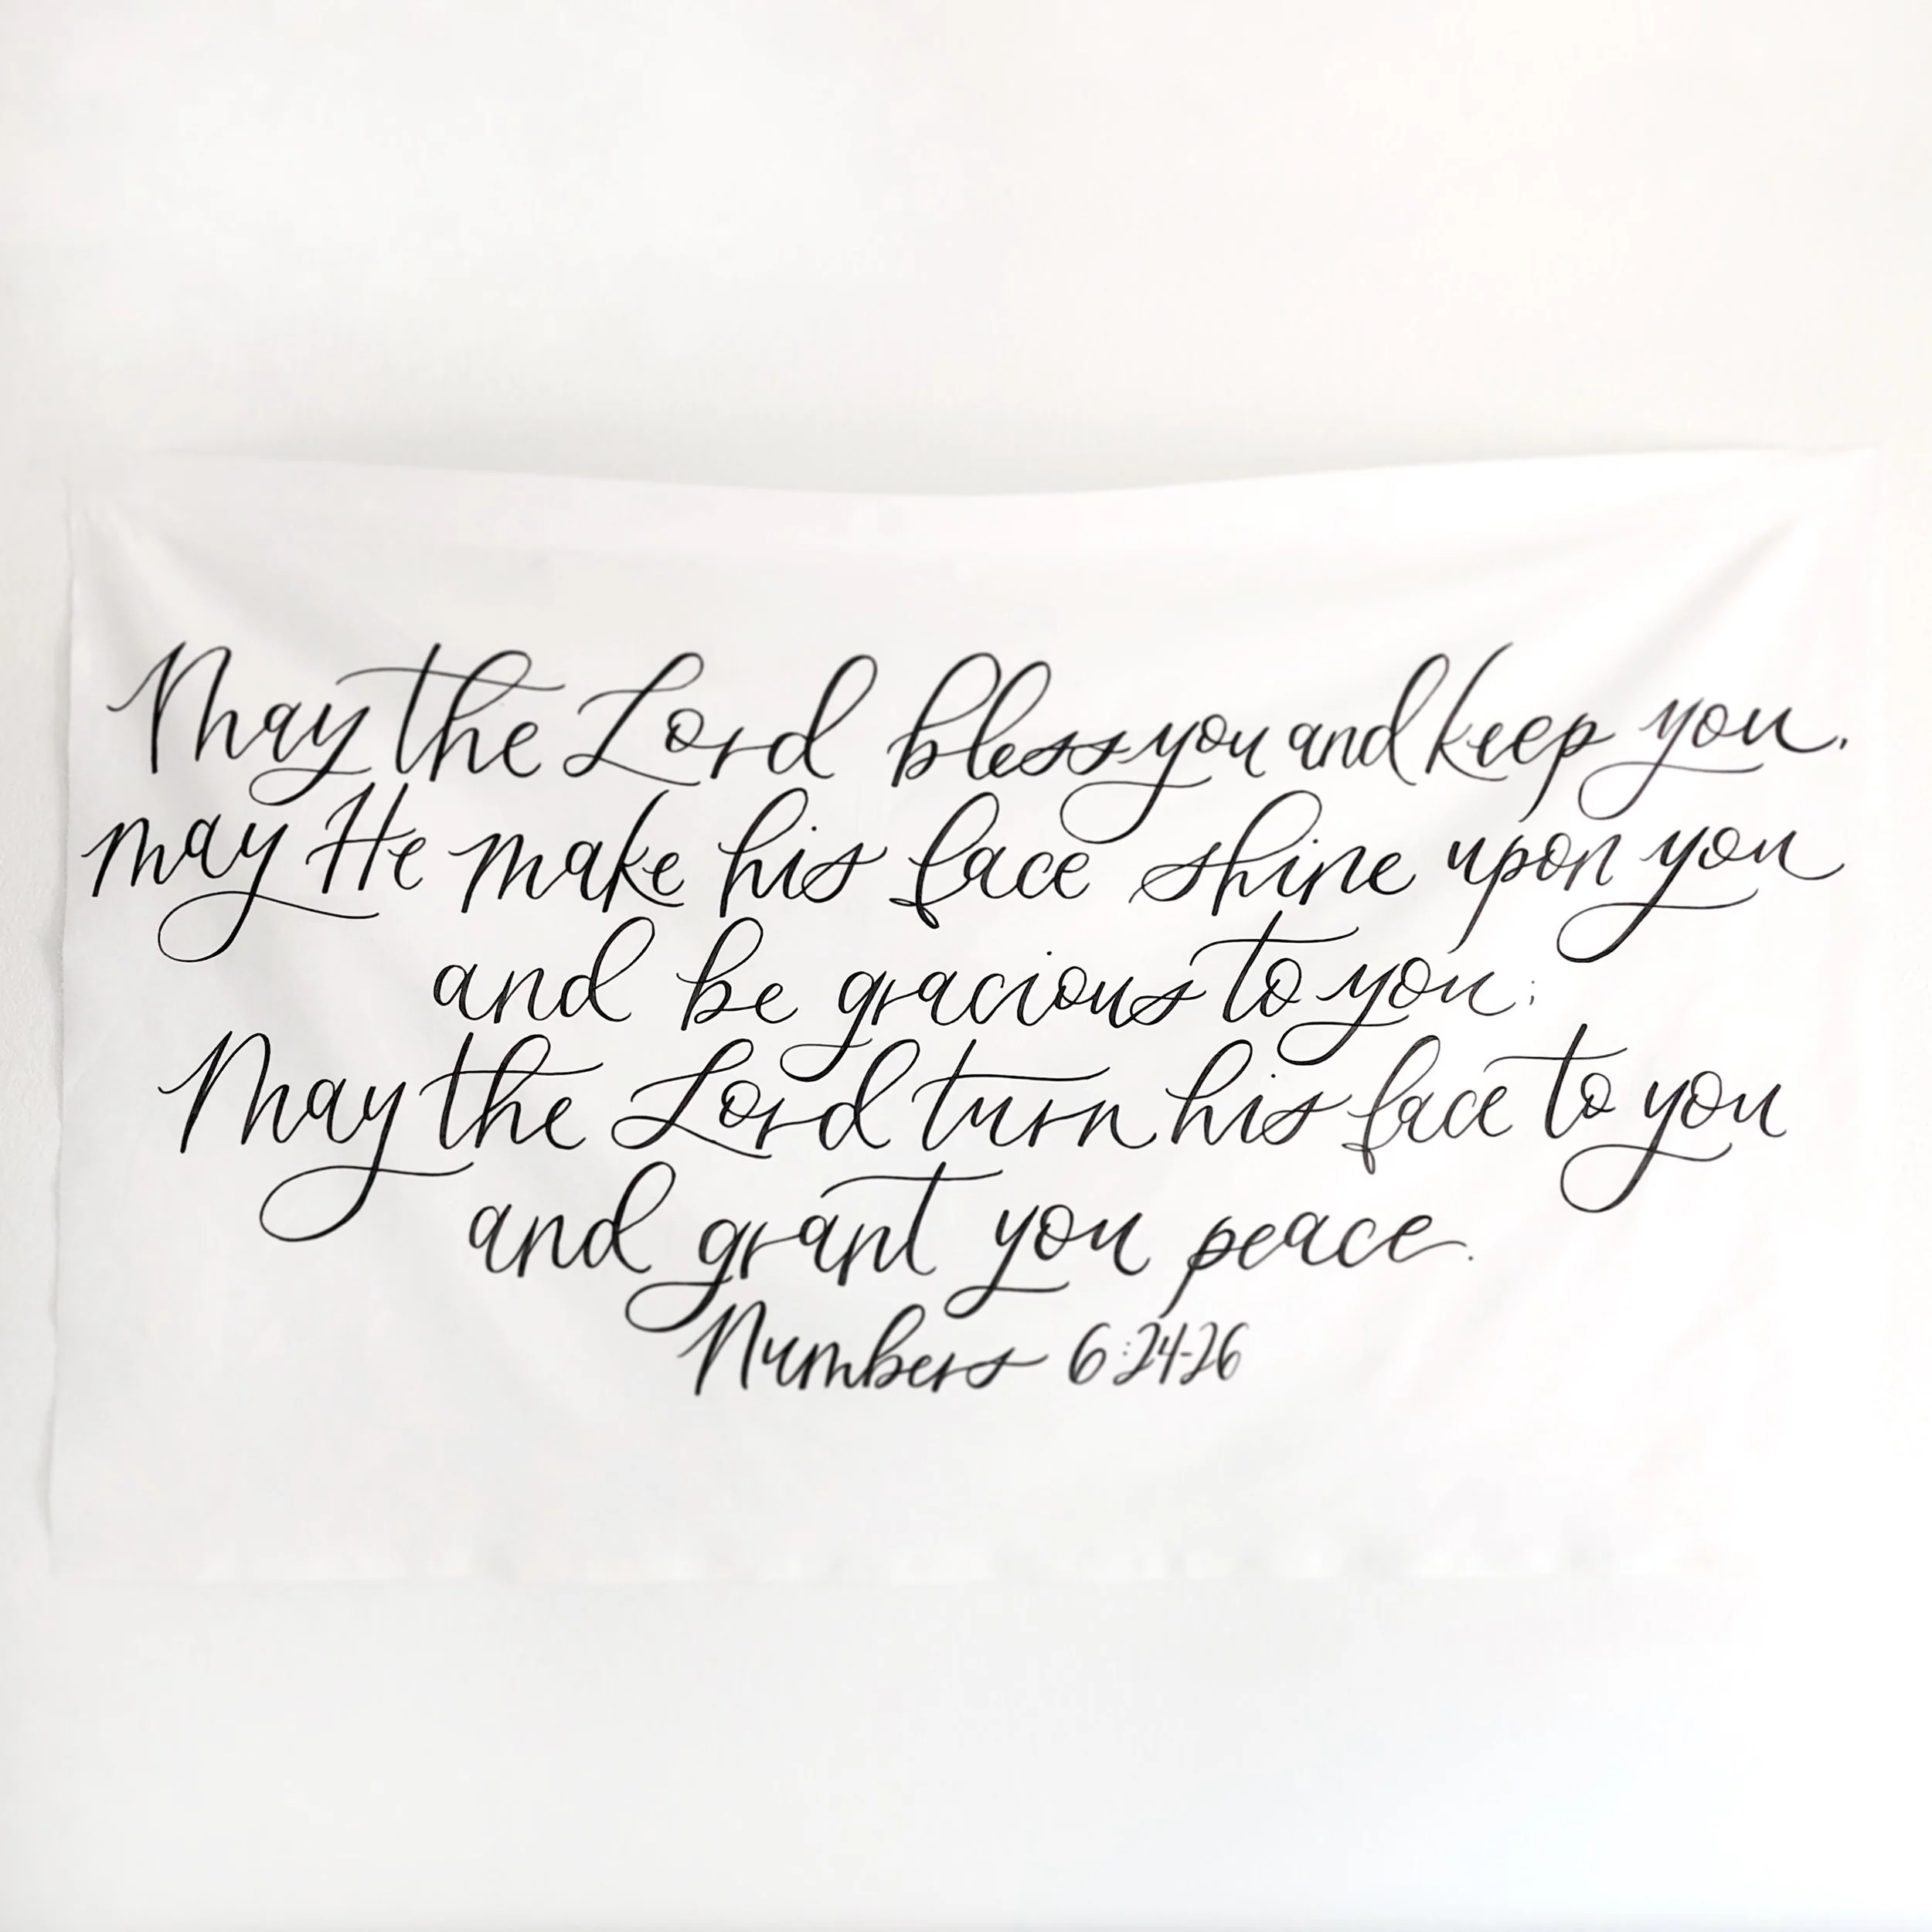 May the Lord bless you and keep you.
may He make his face shine upon you
and be gracious to you;
May the Lord turn his face to you
and grant you peace.
Numbers 6:24-26